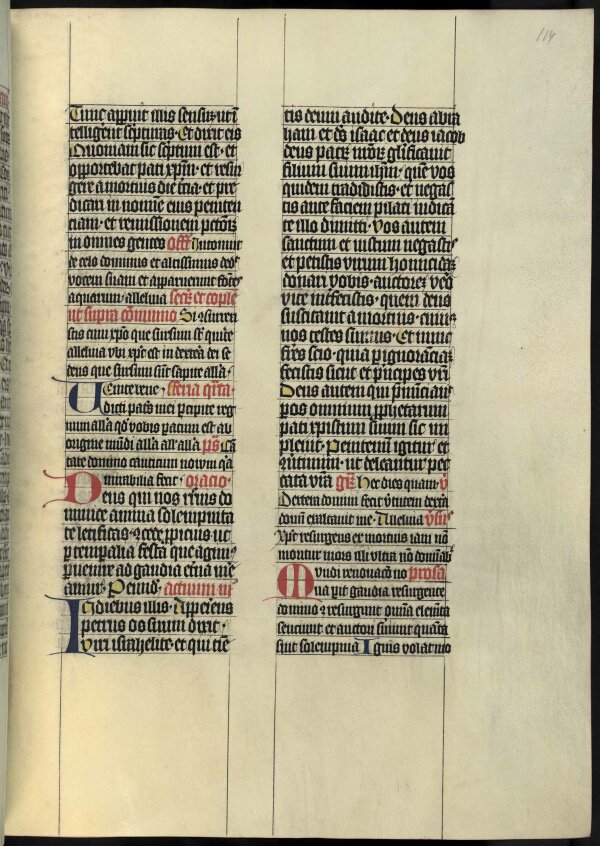 114
Tunc apparuit illis sensum ut i
telligerent scripturas · Et dixit eis
Quoniam sic scriptum est · et
opportebat pati xpm · et resur
gere a mortuis die tercia · et pre
dicari in nomine eius peniten
ciam · et remissionem
in omnes gentes off Intonuit
de celo dominus et altissimus dedit
vocem suam et apparuerunt fontes
aquarum · alleluia Secr et comple
ut supra Communio Si consurrex
istis cum xpo que sursum sunt querite
alleluia ubi xpc est in dextera dei se
dens que sursum sunt sapite alla
Venite bene · feria qrta ·
dicti patris mei percipite reg
num alla qd vobis paratum est ab
origine mundi alla all alla ps Can
tate domino canticum novum qa
mirabilia fecit · oracio ·
Deus qui nos resurrectionis do
minice annua solempnita
te letificas · concede propicius ut
per temporalia festa que agimus
pervenire ad gaudia eterna me
amur · Per eund · actuum
In diebus illis · Aperiens
petrus os suum dixit ·
Viri israhelite · et qui time
tis deum audite · Deus abra
ham et ds isaac et deus iacob
deus patrum nostrorum glorificavit
filium suum ihm · quem vos
quidem tradidistis · et negas
tis ante faciem pilati iudican
te illo dimitti · Vos autem
sanctum et iustum negastis
et petistis virum homicidam
donari vobis · auctorem vero
vite interfecistis · quem deus
suscitavit a mortuis · cuius
nos testes sumus · Et nunc
fratres scio · quia per ignoranciam
fecistis sicut et principes vestri
Deus autem qui prenunciavit
per os omnium prophetarum
pati xpistum suum sic im
plevit · Penitemini igitur et
convertimini · ut deleantur pec
cata vestra gr Hec dies quam · v
Dextera domini fecit virtutem dextera
domini exaltavit me · Alleluia vsus
Xpc resurgens ex mortuis iam non
moritur mors illi ultra non dominabitur
Mundi renovacio no prosa
va parit gaudia resurgente
domino · resurgunt omnia elementa
serviunt et auctori sunt quanta
sint solempnia Ignis volat mo